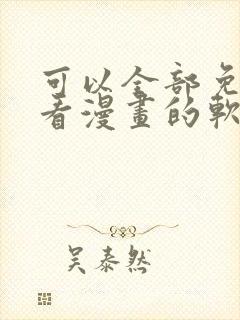 可以全部免
看漫畫的軟
吴泰然